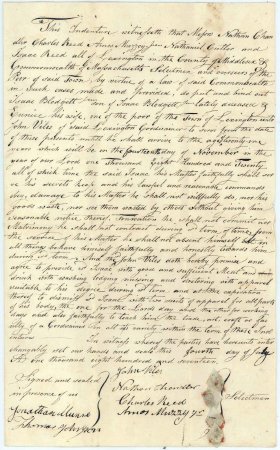 This Indenture witnesseth that Major Nathan Chan
dler Charles Reed Amos Muzzey Jun Nathaniel Cutler and
Isaac Reed all of Lexington in the County of Middlesex &
Commonwealth of Massachusetts Selectmen and overseers of the
Poor of said Town, by virtue of a law of said Commonwealth
in such cases made and provided, do put and bind out
Isaac Blodgett son of Isaac Blodgett lately deceased &
Eunice his wife, one of the poor of the Town of Lexington unto
John Viles of said Lexington Cordwainer to serve from the date
of these presents until he shall arrive to the age of twenty one
years which will be on the fourteenth day of November in the
year of our Lord one Thousand Eight Hundred and Twenty,
all of which time the said Isaac his Master faithfully shall serve
his secrets keep and his lawful and reasonable commands
obey, damage to his Master he shall not wilfully do, nor his
goods waste, see them wasted by others without giving him
reasonable notice thereof. Fornication he shall not commit nor
Matrimony he shall not contract during
service of his Master he shall not absent himself but in
all things behave himself faithfully and honestly towards him
during s term. And the s John Viles doth hereby promise and
agree to provide s Isaac with good and sufficient Meat and
drink with washing lodging nursing and doctoring with apparel
suitable to his degree during s term and at the expiration
thereof to dismiss s Isaac with two suits of apparel for all parts
of his body, the one for the Lord day and the other for working
days and also faithfully to teach him the trade, art, craft or mys
tery of a Cordwainer in all its variety within the term of these Inden
tures
In witness whereof the parties have hereunto inter
changeably set our hands and seals this fourth day of July
A D one thousand eight hundred and seventeen
John Viles
Signed and sealed
in presence of us
Nathan Chandler
Charles Reed
Amos Muzzy Jr
Selectmen
Jonathan Munroe
Thomas Johnson